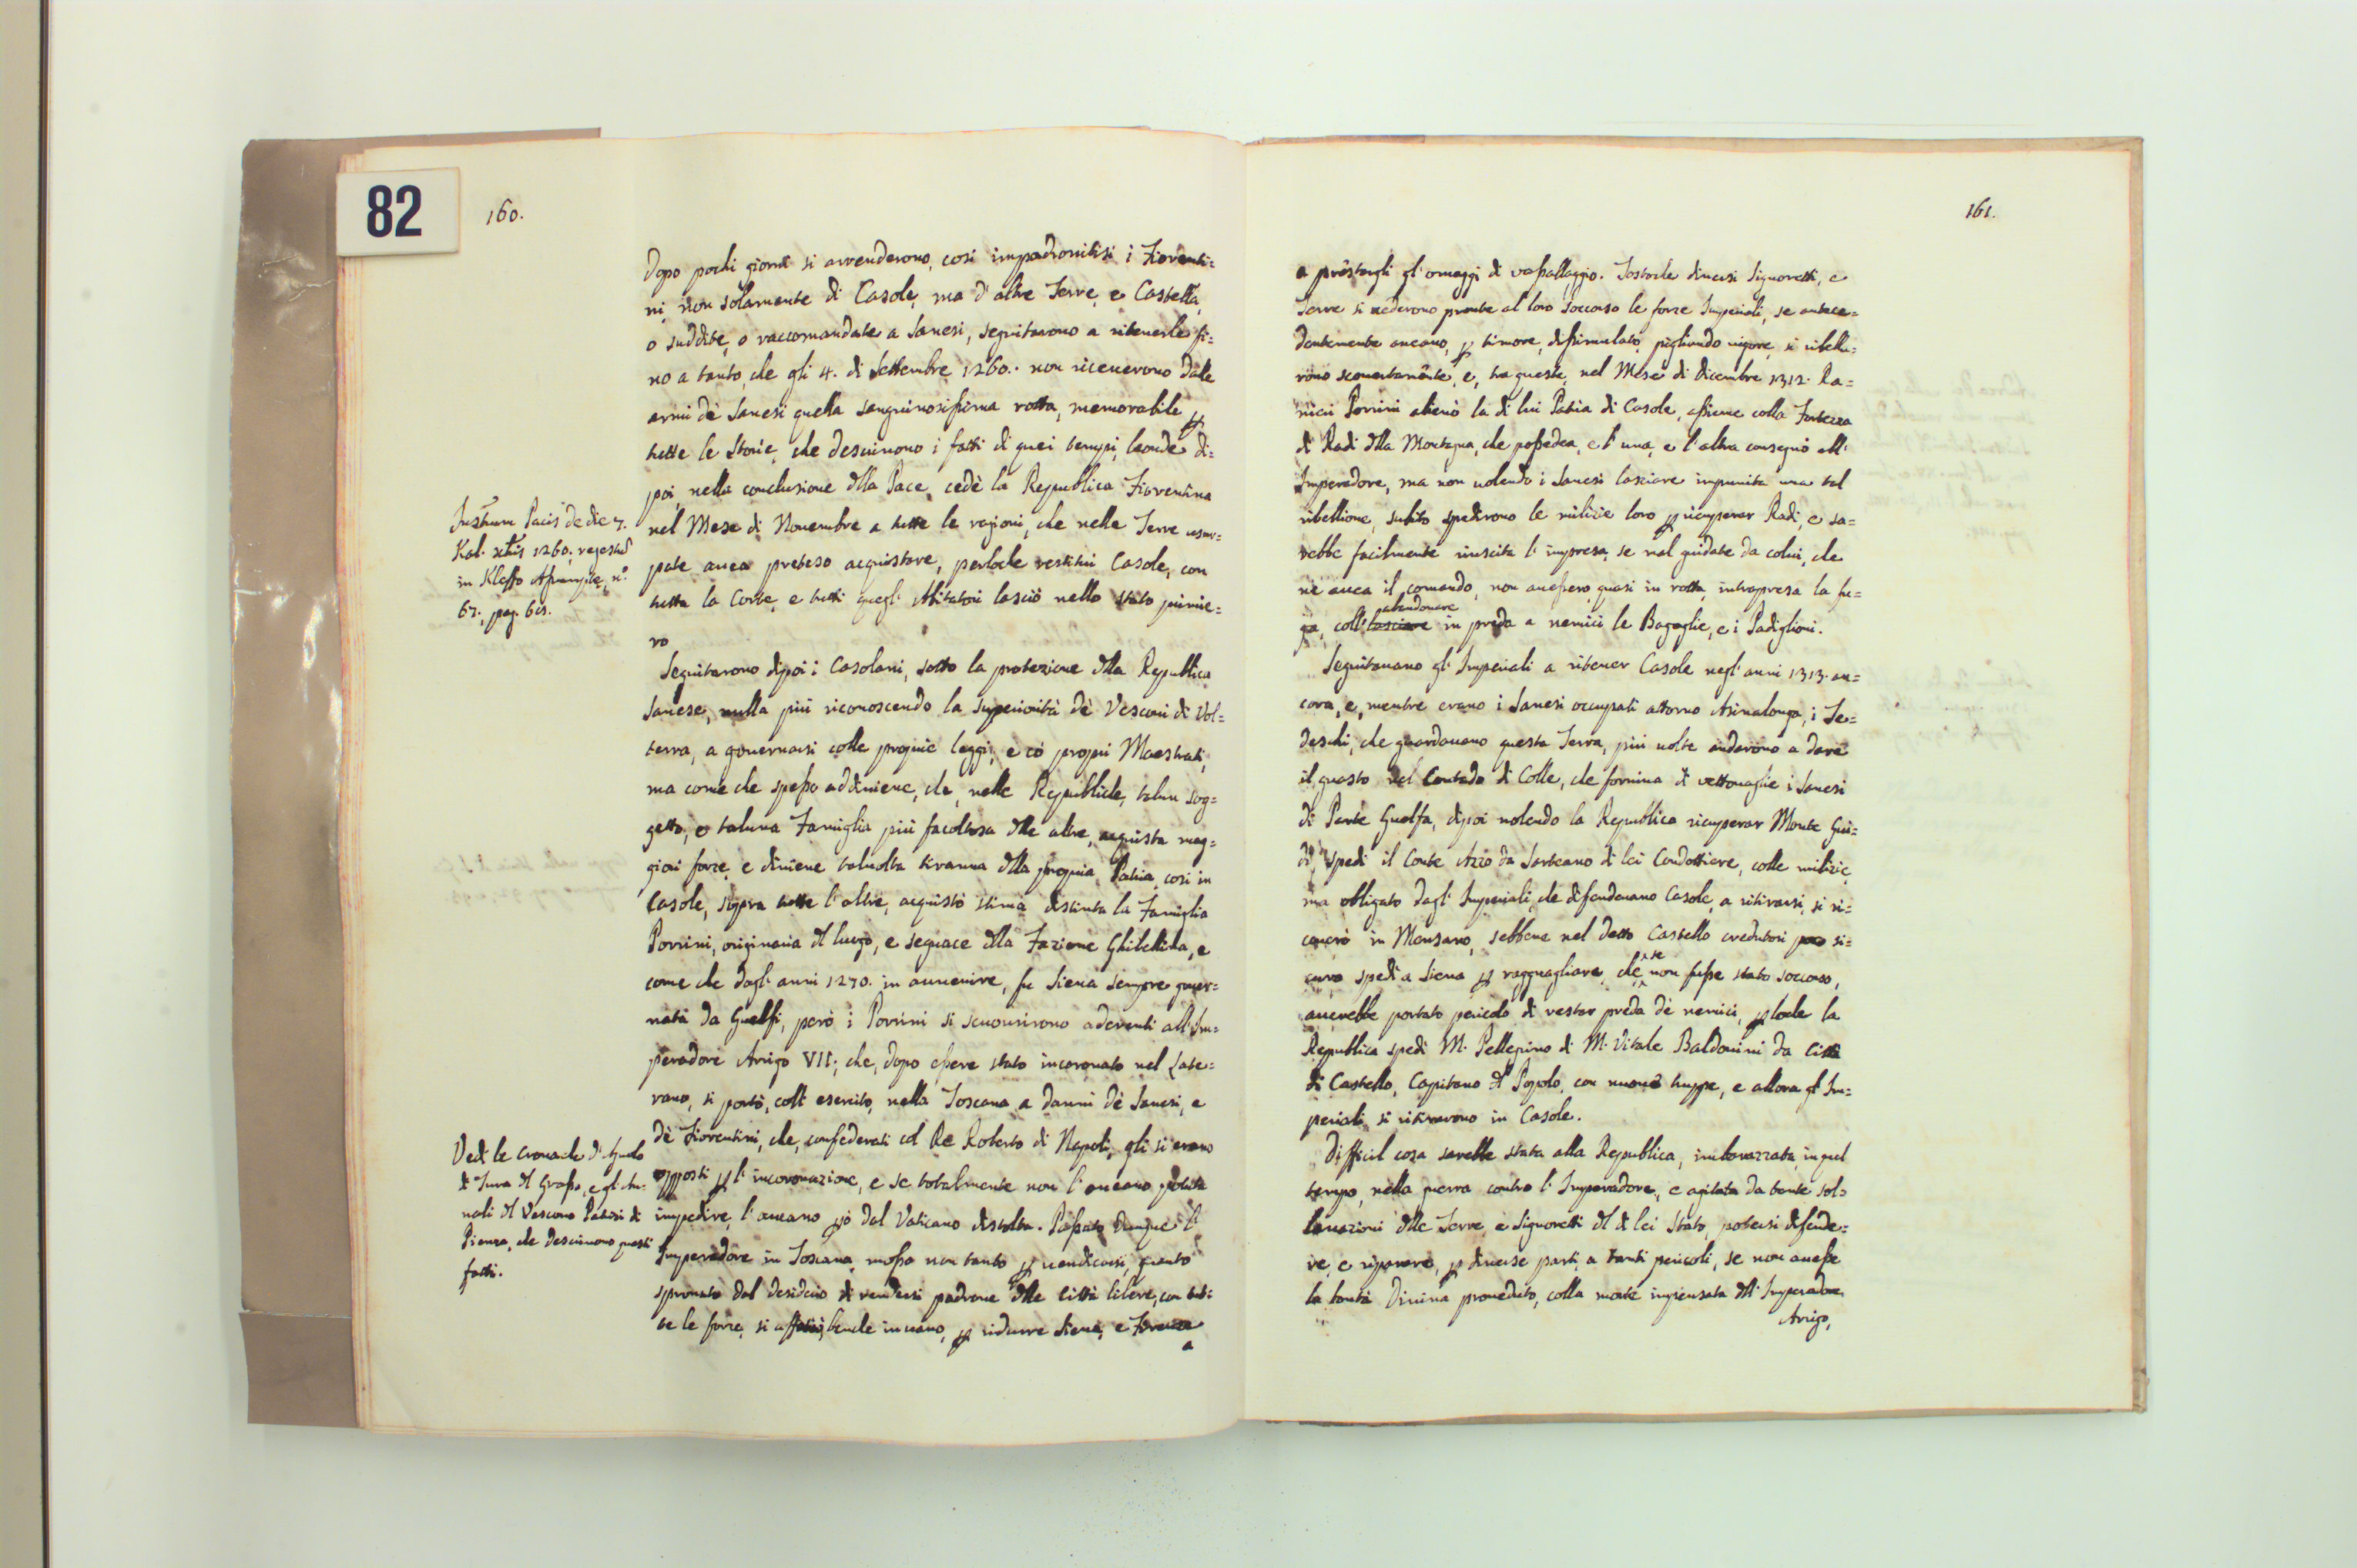 82
160.
Dopo pochi giorni si arrenderono, così impadronitisi i Fiorenti=
ni non solamente di Casole, ma d'altre Terre, e Castella,
o suddite, o raccomandate a Sanesi, seguitarono a ritenerle fi=
no a tanto, che gli 4. di Settembre 1260. non riceverono dalle
armi dè Sanesi quella sanguinosissima rotta, memorabile p
tutte le Storie, che descrivono i fatti di quei tempi, laonde di=
poi, nella conclusione dlla Pace, cedè la Republica Fiorentina
nel Mese di Novembre a tutte le ragioni, che nelle Terre usur=
pate avea preteso acquistare, perloche restituì Casole, con
tutta la Corte, e tutti quegl' Abitatori lasciò nello stato primie=
ro
Instrum Pacis de die 7.
Kal. xbris 1260. regestrd
in Kleffo Assumptæ, n.°
67. pag. 61.
Seguitarono dipoi i Casolani, sotto la protezione dlla Republica
Sanese, nulla più riconoscendo la superiorità dè Vescovi di Vol=
terra, a governarsi colle proprie leggi, e co' proprii Maestrati,
ma come che spesso addiviene, che, nelle Republiche, talun sog=
getto, o taluna Famiglia più facoltosa dlle altre, acquista mag=
giori forze, e diviene talvolta tiranna dlla propria Patria, così in
Casole, sopra tutte l'altre, acquistò stima distinta la Famiglia
Porrini, originaria dl luogo, e seguace dlla Fazione Ghibellina, e
come che dagl' anni 1270. in avvenire, fu Siena sempre gover=
nata da Guelfi, però i Porrini si scuoprirono aderenti all'Im=
peradore Arrigo VII; che, dopo essere stato incoronato nel Late=
rano, si portò, coll' esercito, nella Toscana a danni dè Sanesi, e
dè Fiorentini, che, confederati col Re Roberto di Napoli, gli si erano
opposti p l'incoronazione, e se totalmente non l'aveano potuta
impedire, l'aveano pò dal Vaticano distolta. Passato dunque l'
Imperadore in Toscana, mosso non tanto p vendicarsi, quanto
spronato dal desiderio di rendersi padrone dlle Città libere, con tut=
te le forze, si affaticò, benche in vano, p ridurre Siena, e Firenze
a
Vedi le Cronache d' Agnolo
di Tura dl Grasso, e gl' An=
nali dl Vescovo Patrizi di
Pienza, che descrivono questi
fatti.
161.
a prestargli gl' omaggi di vassallaggio. Tostoche diversi Signoretti, e
Terre si vederono pronte al loro soccorso le forze Imperiali, se antece=
dentemente aveano, p timore, dissimulato, pigliando vigore, si ribella=
rono scopertamente, e, tra queste, nel Mese di Dicembre 1312. Ra=
nieri Porrini alienò la di lui Patria di Casole, assieme colla Fortezza
di Radi dlla Montagna, che possedea, e l'una, e l'altra consegnò all'
Imperadore, ma non volendo i Sanesi lasciare impunita una tal
ribellione, subito spedirono le milizie loro p ricuperar Radi, e sa=
rebbe facilmente riuscita l'impresa, se mal guidate da colui, che
ne avea il comando, non avessero, quasi in rotta, intrapresa la fu=
abandonare
ga, coll' lasciare in preda a nemici le Bagaglie, e i Padiglioni.
Seguitavano gl' Imperiali a ritener Casole negl' anni 1313. an=
cora, e, mentre erano i Sanesi occupati attorno Asinalonga, i Te=
deschi, che guardavano questa Terra, più volte andarono a dare
il guasto nel Contado di Colle, che forniva di vettovaglie i Sanesi
di Parte Guelfa, dipoi volendo la Republica ricuperar Monte Gui=
di, spedì il Conte Azzo da Sarteano di lei Condottiere, colle milizie,
ma obligato dagl' Imperiali, che difendevano Casole, a ritirarsi, si ri=
coverò in Mensano, sebbene nel detto Castello credutosi poco si=
curo spedì a Siena p ragguagliare, che se non fusse stato soccorso,
averebbe portato pericolo di restar preda dè nemici, ploche la
Republica spedì M. Pellegrino di M. Vitale Baldovini da Città
di Castello, Capitano dl Popolo, con nuove truppe, e allora gl' Im=
periali si ritirarono in Casole.
Difficil cosa sarebbe stata alla Republica, imbarazzata, in quel
tempo, nella guerra contro l'Imperadore, e agitata da tante sol=
levazioni dlle Terre, e Signoretti dl di lei Stato, potersi difende=
re, e riparare, p diverse parti, a tanti pericoli, se non avesse
la bontà Divina proveduto, colla morte inpensata dll' Imperadore
Arrigo,